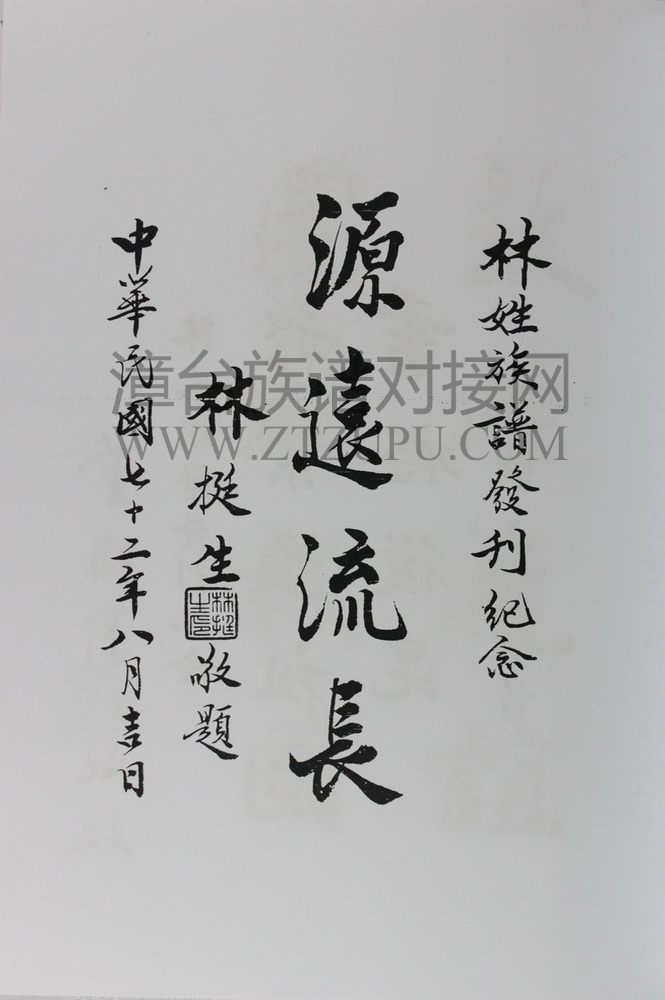 林姓族譜發刊紀念
源遠流長
林挺生敬題
林挺生印
中華民國七十二年八月吉日
漳台族谱对接网
WWW.ZTZUPU.COM